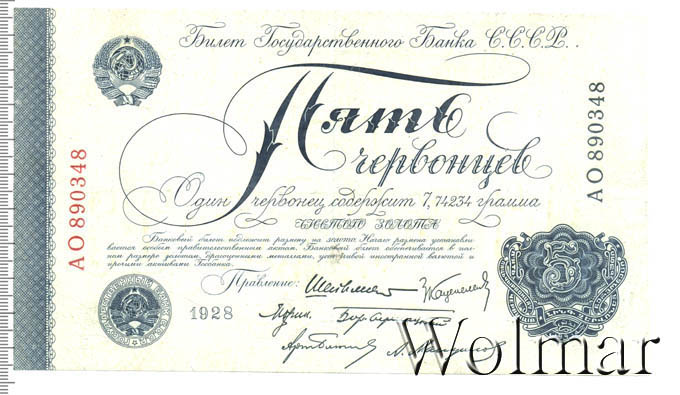 Билет Государственного Банка С.С.С.Р.
Пять
червонцев
Один червонец содержит 7,74234 грамма
чистого золота
Банковый билет подлежит размену на золото. Начало размена устанавли-
вается особым правительственным актом. Банковый билет обеспечивается в пол-
ном размере золотом, драгоценными металлами, устойчивой иностранной валютой и
прочими активами Госбанка.
Правление:
1928
АО 890348
АО 890348
5
Wolmar